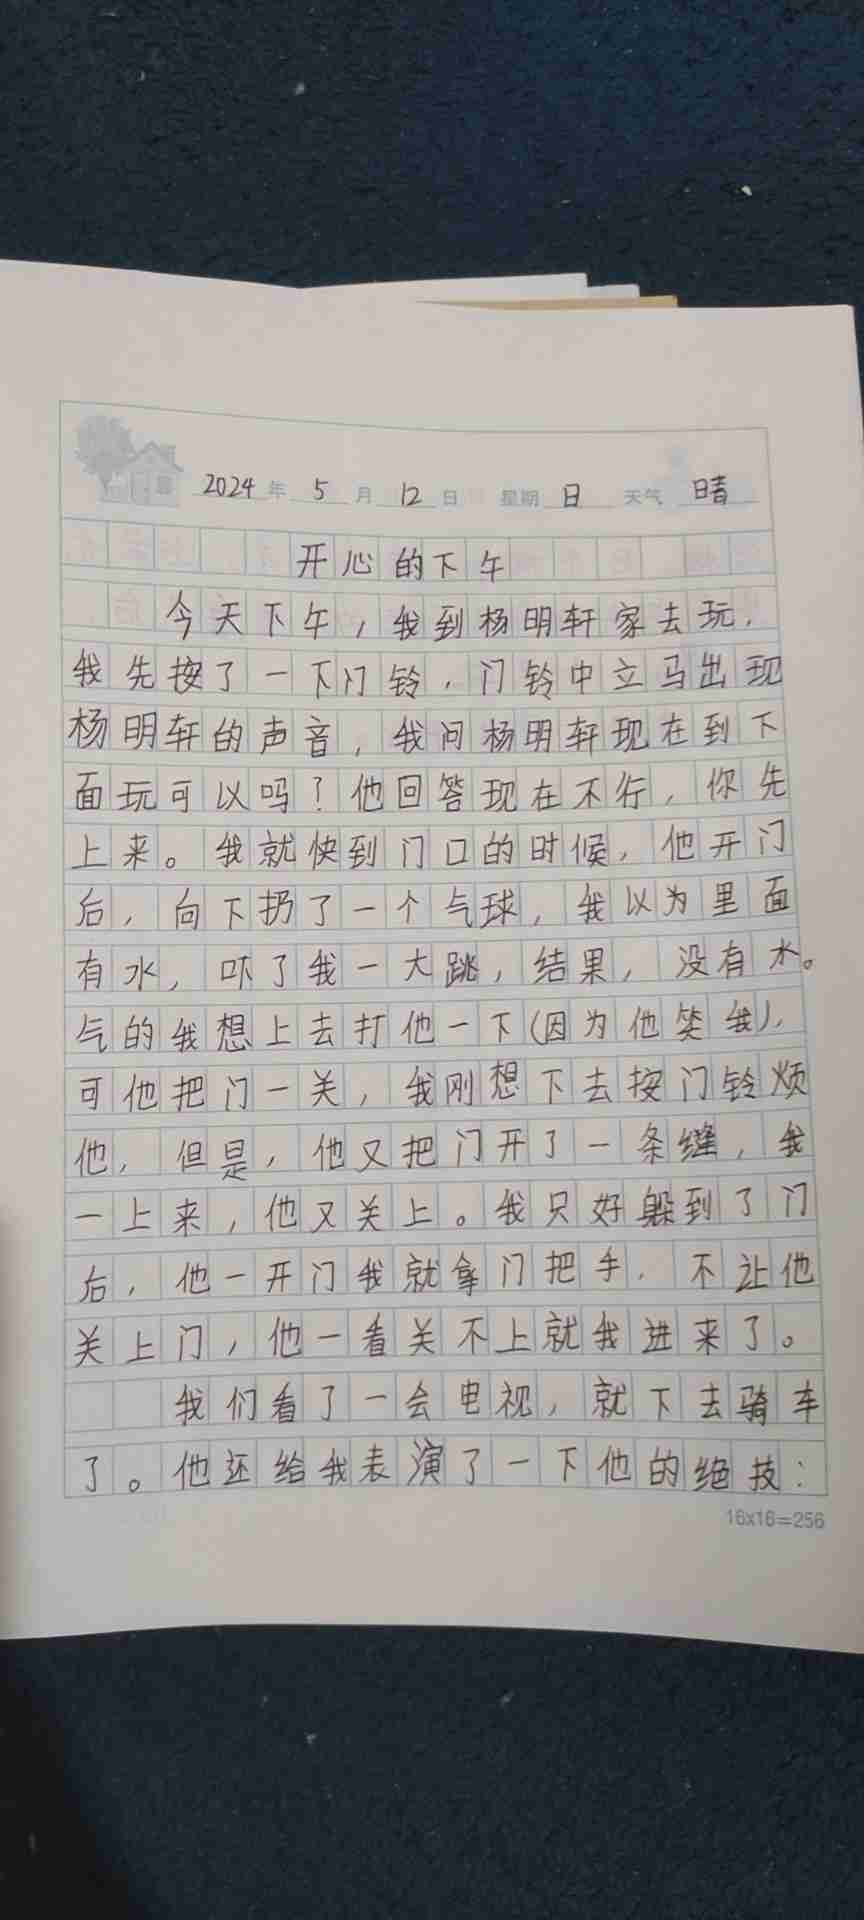 2024年5月12日 星期日 天气 晴
开心的下午
今天下午，我到杨明轩家去玩，
我先按了一下门铃，门铃中立马出现
杨明轩的声音，我问杨明轩现在到下
面玩可以吗？他回答现在不行，你先
上来。我就快到门口的时候，他开门
后，向下扔了一个气球，我以为里面
有水，吓了我一大跳，结果，没有水。
气的我想上去打他一下(因为他笑我)，
可他把门一关，我刚想下去按门铃烦
他，但是，他又把门开了一条缝，我
一上来，他又关上。我只好躲到了门
后，他一开门我就拿门把手，不让他
关上门，他一看关不上就我进来了。
我们看了一会电视，就下去骑车
了。他还给我表演了一下他的绝技：
16x16=256